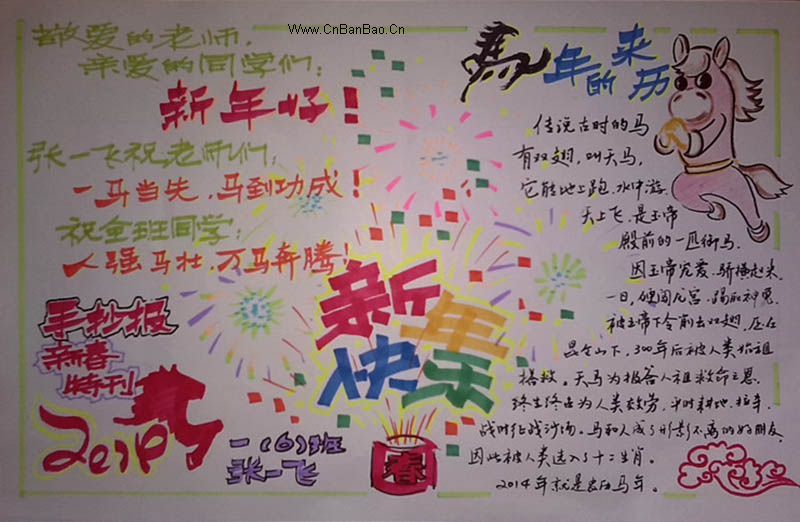 Www.CnBanBao.Cn
敬爱的老师，
亲爱的同学们：
新年好！
张一飞祝老师们：
一马当先，马到功成！
祝全班同学：
人强马壮，万马奔腾！
手抄报
新春
特刊
2014
一（6）班
张一飞
新年
快乐
春
馬年的来历
传说古时的马
有双翅，叫天马，
它能地上跑，水中游，
天上飞，是玉帝
殿前的一匹御马，
因玉帝宠爱，骄横起来，
一日，硬闯龙宫，踢死神龟，
被玉帝下令削去双翅，压在
昆仑山下，300年后被人类始祖
拯救。天马为报答人祖救命之恩，
终生终世为人类效劳，平时耕地、拉车，
战时征战沙场。马和人成了形影不离的好朋友，
因此被人类选入了十二生肖。
2014年就是农历马年。